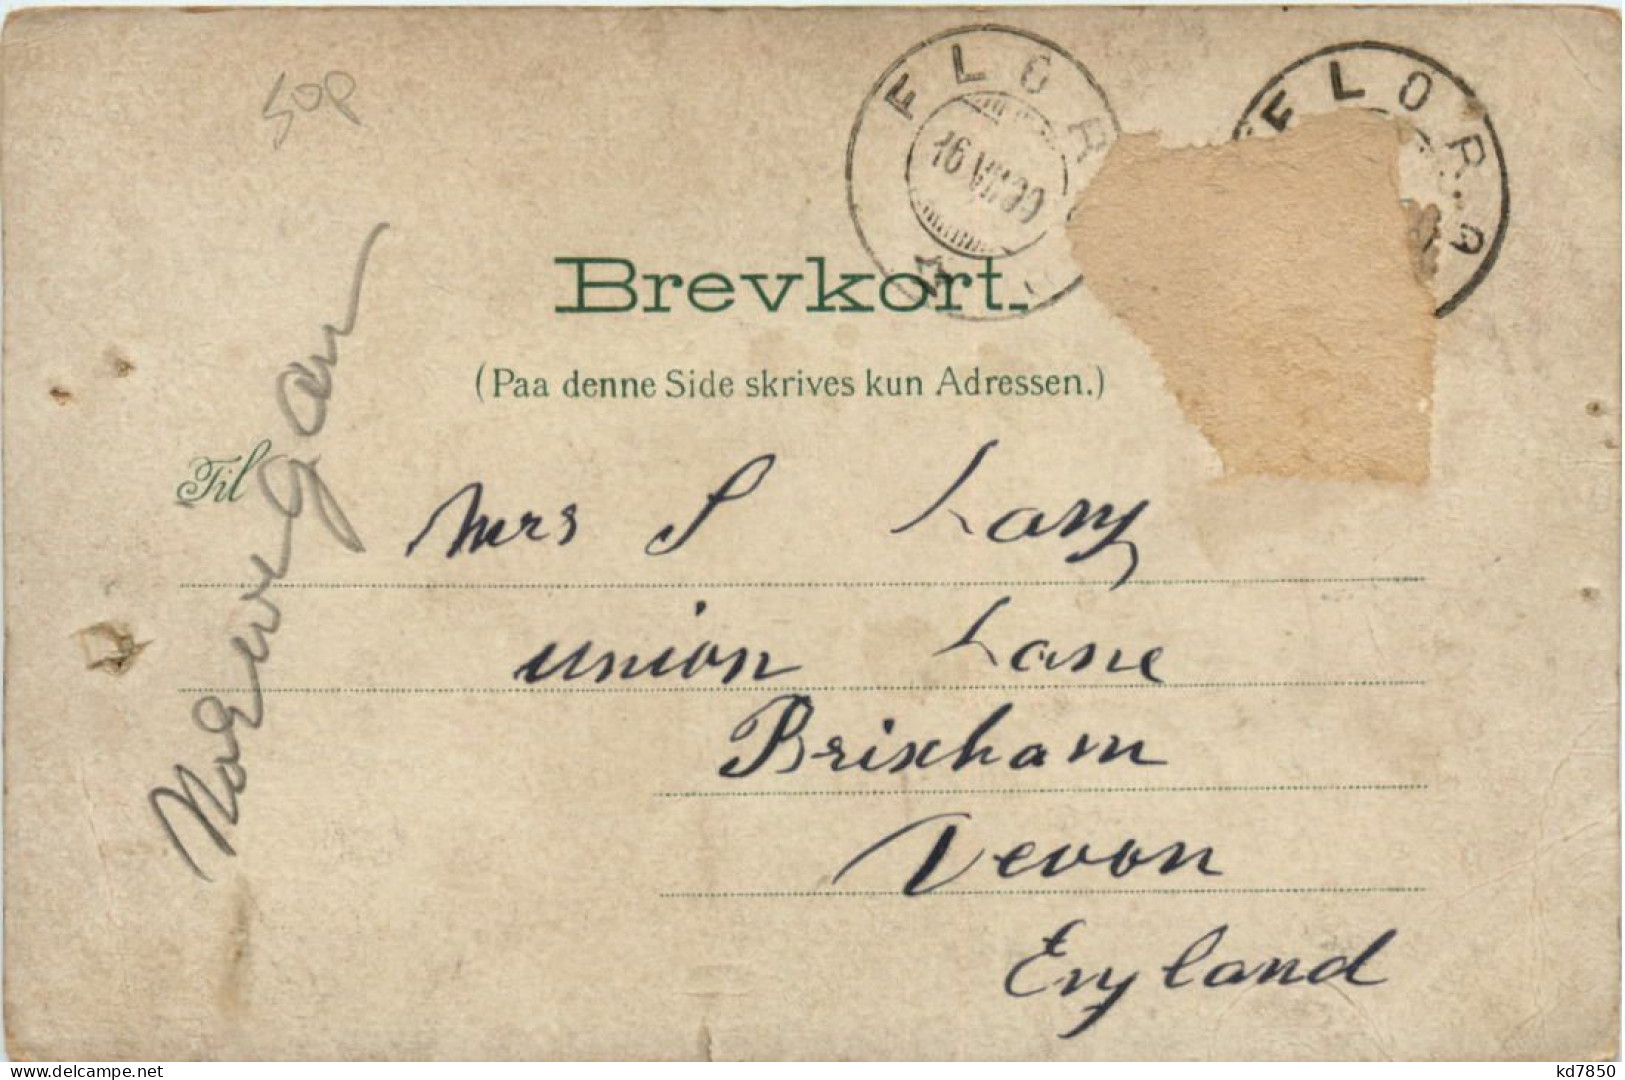 50p
FLOR
16 VIII 00
FLOR
Brevkort.
(Paa denne Side skrives kun Adressen.)
Til
Mrs S Lang
union Lane
Brixham
Devon
England
Norwegan
kd7850